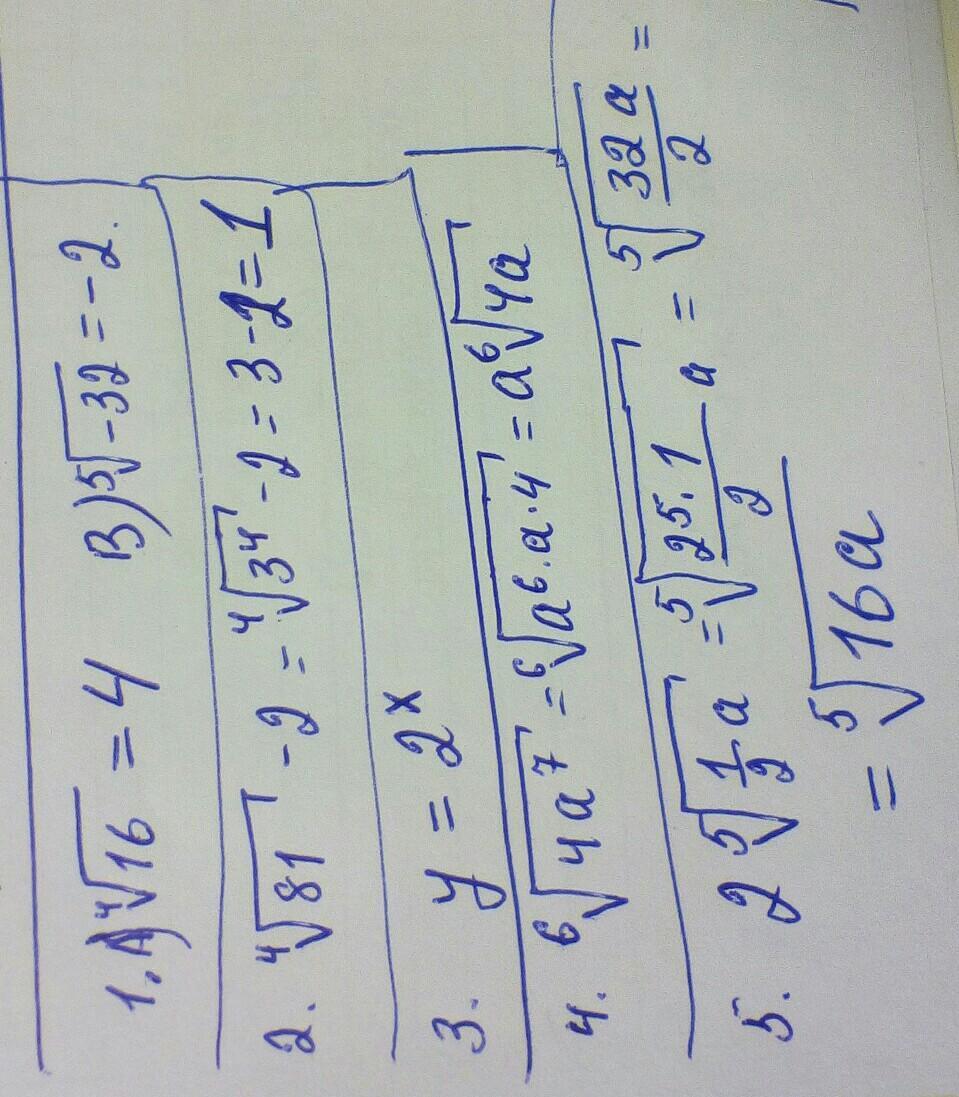 1. A) ⁴√16 = 4 B) ⁵√-32 = -2.
2. ⁴√81 - 2 = ⁴√3⁴ - 2 = 3 - 2 = 1
3. y = 2ˣ
4. ⁶√4a⁷ = ⁶√a⁶·a·4 = a⁶√4a
5. 2 ⁵√1/2 a = ⁵√2⁵·1/2 a = ⁵√32a/2 =
= ⁵√16a